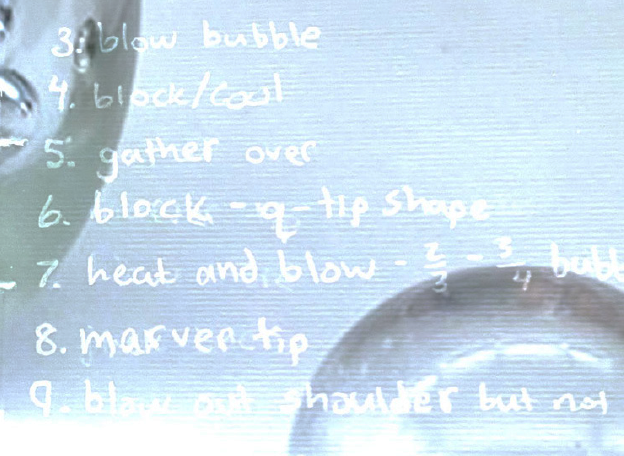 3. blow bubble
4. block/cool
5. gather over
6. block - q-tip shape
7. heat and blow - 2/3 - 3/4
8. marver tip
9. blow out shoulder but not